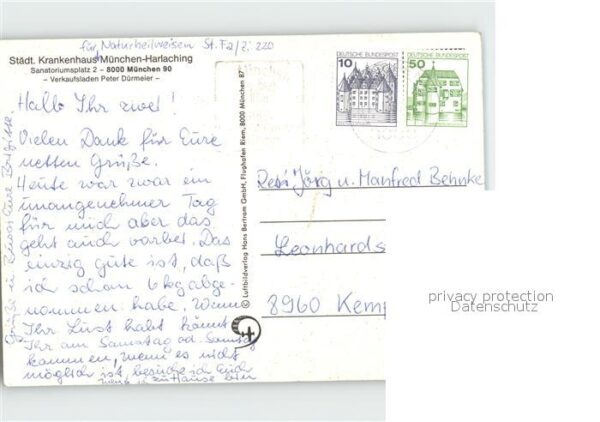 für Naturheilweisen St. F2/Zi 220
Städt. Krankenhaus München-Harlaching
Sanatoriumsplatz 2 – 8000 München 90
– Verkaufsladen Peter Dürmeier –
Hallo Ihr zwei!
Vielen Dank für Eure
netten Grüße.
Heute war zwar ein
unangenehmer Tag
für mich aber das
geht auch vorbei. Das
einzig gute ist, daß
ich schon 6 kg abge-
nommen habe. Wenn
Ihr Lust habt könnt
Ihr am Samstag od. Sonntag
kommen, wenn es nicht
möglich ist, besuche ich Euch
wenn ich zuHause bin
Grüße u. Bussi Eure Brigitte
© Luftbildverlag Hans Bertram GmbH, Flughafen Riem, 8000 München 87
DEUTSCHE BUNDESPOST
10
DEUTSCHE BUNDESPOST
50
Jörg u. Manfred Behnke
Leonhards
8960 Kemp
privacy protection
Datenschutz